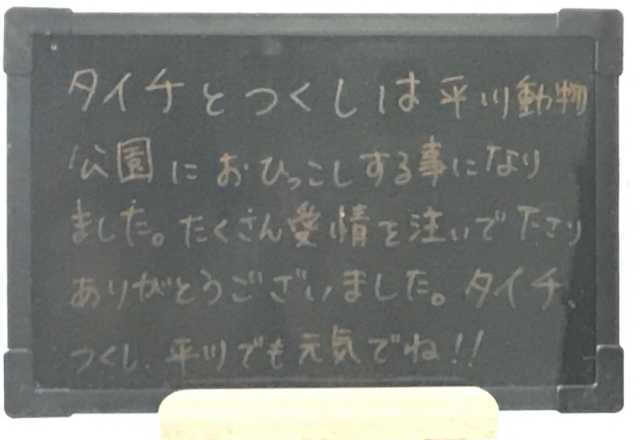 タイチとつくしは平川動物
公園におひっこしする事になり
ました。たくさん愛情を注いで下さり
ありがとうございました。タイチ、
つくし、平川でも元気でね!!